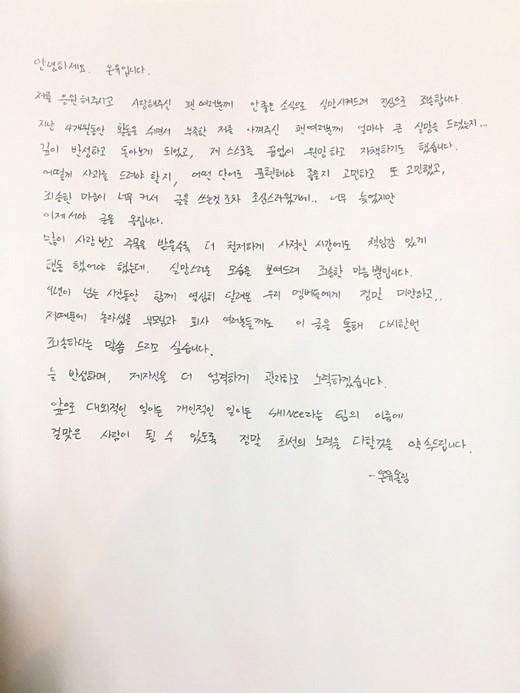 안녕하세요. 온유입니다.
저를 응원해주시고 사랑해주신 팬 여러분께 안좋은 소식으로 실망시켜드려 진심으로 죄송합니다
지난 4개월동안 활동을 쉬면서 부족한 저를 아껴주신 팬여러분께 얼마나 큰 실망을 드렸는지...
깊이 반성하고 돌아보게 되었고, 제 스스로를 끊임없이 원망하고 자책하기도 했습니다.
어떻게 사과를 드려야 할지, 어떤 단어로 표현해야 좋을지 고민하고 또 고민했고,
죄송한 마음이 너무 커서 글을 쓰는것 조차 조심스러웠기에.. 너무 늦었지만
이제서야 글을 올립니다.
많이 사랑 받고 주목을 받을수록 더 철저하게 사적인 시간에도 책임감 있게
행동 했어야 했는데. 실망스러운 모습을 보여드려 죄송한 마음 뿐입니다.
9년이 넘는 시간동안 함께 열심히 달려온 우리 멤버들에게 정말 미안하고..
저때문에 놀라셨을 부모님과 회사 여러분들께도 이 글을 통해 다시한번
죄송하다는 말씀 드리고 싶습니다.
늘 반성하며, 제자신을 더 엄격하게 관리하고 노력하겠습니다.
앞으로 대외적인 일이든 개인적인 일이든 SHINee라는 팀의 이름에
걸맞은 사람이 될 수 있도록 정말 최선의 노력을 다할것을 약속드립니다.
- 온유올림